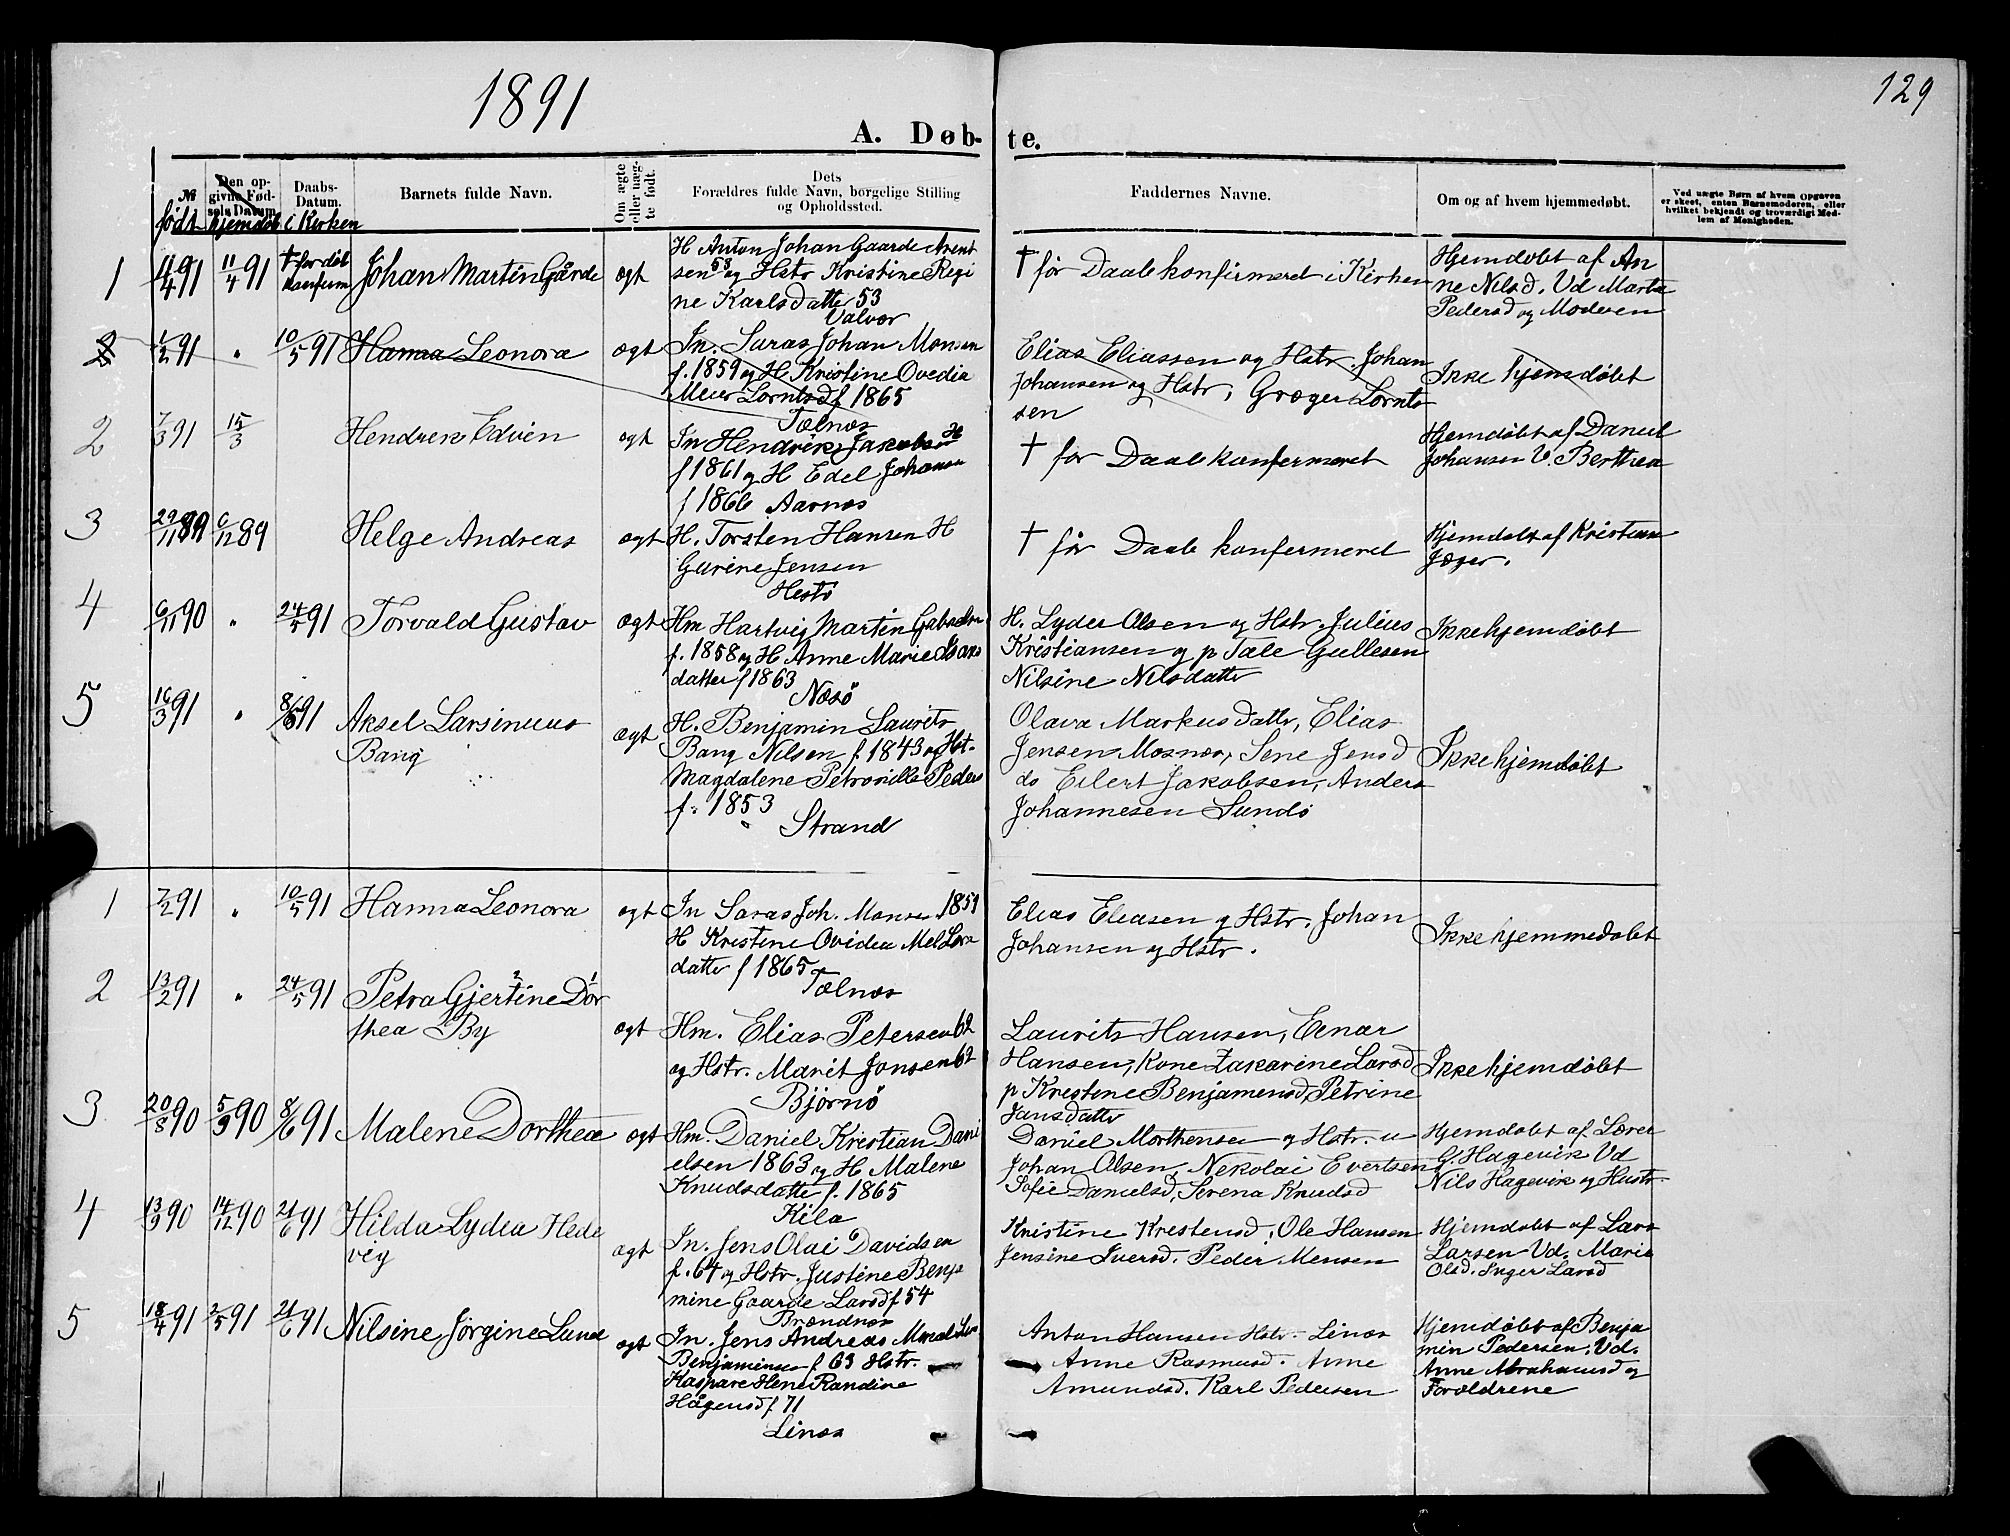 1891
129
A. Døb-
te.
№
født
Den opgivne Fødsels Datum.
hjemdøb
Daabs-Datum.
i Kirken
Barnets fulde Navn.
Om ægte eller uægte født.
Dets
Forældres fulde Navn, borgelige Stilling
og Opholdssted.
Faddernes Navne.
Om og af hvem hjemmedøbt.
Ved uægte Børn af hvem Opgaven
er skeet, enten Barnemoderen, eller
hvilket bekjendt og troværdigt Med-
lem af Menigheden.
1 4/4 91 11/4 91 † før døb Johan Martin Gårde ægt
H Anton Johan Gaarde Arent
sen 53 og Hstr Kristine Regi
ne Karlsdatter 53
Valvær
† før Daab konfirmeret i Kirken
Hjemdøbt af An
ne Nilsd. Vd Marta
Pedersd og Moderen
2 1/2 91 " 10/5 91 Hanna Leonora ægt
In. Saras Johan Monsen
f. 1859 og H Kristine Ovedia
Meier Lorntsd f 1865
Tælnes
Elias Eliassen og Hstr. Johan
Johansen og Hstr, Grøger Lornt
sen
Ikke hjemdøbt
2 7/3 91 15/3 Hendrik Edvin ægt
In Hendrik Jakobsen
f 1861 og H Edel Johansen
f 1866 Aarnes
† før Daab konfermeret
Hjemdøbt af Daniel
Johansen V. Berthea
3 29/11 89 6/12 89 Helge Andreas ægt
H. Torsten Hansen H
Gurine Jensen
Hestø
† før Daab konfermeret
Hjemdøbt af Kristian
Jæger.
4 6/11 90 " 24/5 91 Torvald Gustav ægt
Hm Hartvig Martin
f. 1858 og H Anne Marie
datter f 1863
Næsø
H. Lyder Olsen og Hstr. Julius
Kristiansen og p Tale Gullesen
Nilsine Nilsdatter
Ikke hjemdøbt
5 16/3 91 " 8/6 91 Aksel Larsinius
Bang ægt
H. Benjamin Laurits
Bang Nilsen f. 1843 og Hst.
Magdalene Petronille Peders
f. 1853
Strand
Olava Markusdattr, Elias
Jensen Mosnes, Sene Jensd
do Eilert Jakobsen, Anders
Johannesen Sundø
Ikke hjemdøbt
1 7/2 91 " 10/5 91 Hanna Leonora ægt
In Saras Joh. Monsen 1859
H Kristine Ovidia
datter f 1865
Tælnes
Elias Eleasen og Hstr. Johan
Johansen og Hstr.
Ikke hjemmedøbt
2 13/2 91 " 24/5 91 Petra Gjertine Dor
thea By ægt
Hm. Elias Petersen 62
og Hstr. Marit Jonsen 62
Bjørnø
Laurits Hansen, Einar
Hansen, Kone Zakarine Larsd
p Krestine Benjamensd, Petrine
Jansdattr
Ikke hjemdøbt
3 20/8 90 5/9 90 8/6 91 Malene Dorthea ægt
Hm. Daniel Kristian Dani
elsen 1863 og H Malene
Knudsdatter f. 1865
Kila
Daniel Morthensen og Hstr. u
Johan Olsen, Nekolai Evertsen
Sofie Danielsd, Serena Knudsd
Hjemdøbt af Lærer
O. Hagevik Vd
Nils Hagevik og Hustr.
4 13/9 90 14/12 90 21/6 91 Hilda Lydia Hede
vig ægt
In. Jens Olai Davidsen
f. 64 og Hstr. Justine Benja
mine Gaarde Larsd f 54
Brændnes
Kristine Krestensd, Ole Hansen
Jensine Iversd. Peder Mensen
Hjemdøbt af Lars
Larsen Vd. Marie
Olsd. Inger Larsd
5 18/4 91 2/5 91 21/6 91 Nilsine Jørgine Lund ægt
In. Jens Andreas
Benjaminsen f 63 Hstr.
Kaspare Hene Randine
Hågensd f 71
Lines
Anton Hansen Hstr. Lines
Anne Rasmusd. Anne
Amundsd. Karl Pedersen
Hjemdøbt af Benja
min Pedersen. Vd.
Anne Abrahamsd og
Forældrene